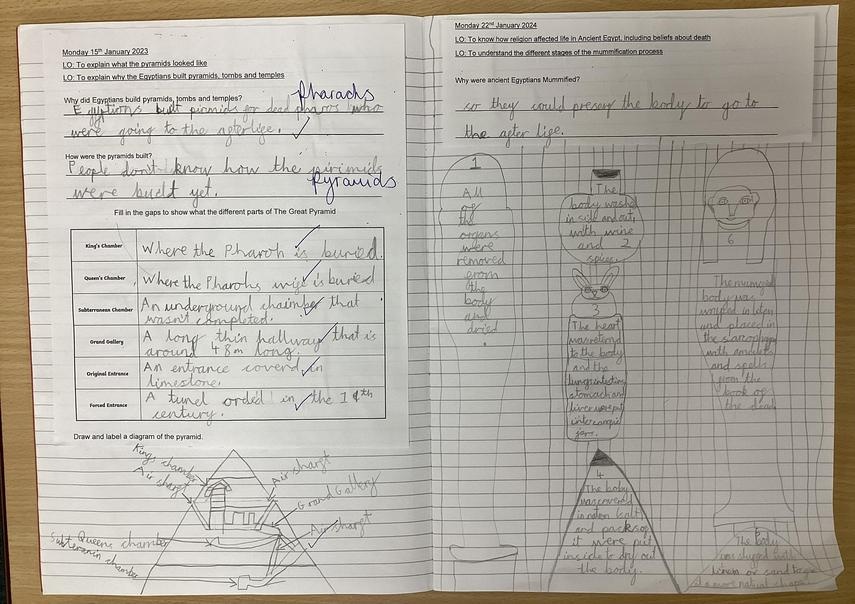 Monday 15th January 2023
LO: To explain what the pyramids looked like
LO: To explain why the Egyptians built pyramids, tombs and temples
Pharaohs
Why did Egyptians build pyramids, tombs and temples?
Egyptions built pirimids for dead pharos who
were going to the afterlife.
How were the pyramids built?
People don't know how the pirimids
were built yet.
Pyramids
Fill in the gaps to show what the different parts of The Great Pyramid
King's Chamber
Where the Pharoh is buried.
Queen's Chamber
Where the Pharohs wife is buried
Subterranean Chamber
An underground chaimber that
wasn't completed.
Grand Gallery
A long thin hallway that is
around 48m long.
Original Entrance
An entrance coverd in
limestone.
Forced Entrance
A tunel orded in the
century.
Draw and label a diagram of the pyramid.
Kings chamber
Air shaft
Air shaft
Grand Gallery
Air shaft
Queens chamber
chamber
Monday 22nd January 2024
LO: To know how religion affected life in Ancient Egypt, including beliefs about death
LO: To understand the different stages of the mummification process
Why were ancient Egyptians Mummified?
so they could preserv the body to go to
the after life.
1
All
of
the
organs
were
removed
from
the
body
and
dried
.
The
body washed
in side and out,
with wine
and 2
spices.
3
The heart
was retond
to the body
and the
lungs intestins
stomach and
liver were put
into canopic
jars.
4
The body
was covered
in naton (salt)
and packs of
it were put
inside to dry out
the body.
5
The body
was stuffed with
linen or sand to
a more natural shape.
6
The mumified
body was
wraped in linen
and placed in
the sarcophagus
with amulets
and spells
from the
book of
the dead.